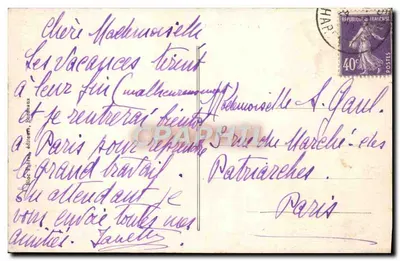 Chère Mademoiselle
Les Vacances tirent
à leur fin (malheureusement)
et je rentrerai bientôt
à Paris pour reprendre
le grand travail.
En attendant je
vous envoie toutes mes
amitiés.
Mademoiselle A. Gaul.
3 rue du Marché des
Patriarches.
Paris
REPUBLIQUE FRANCAISE
40c
POSTES
CPARAMA